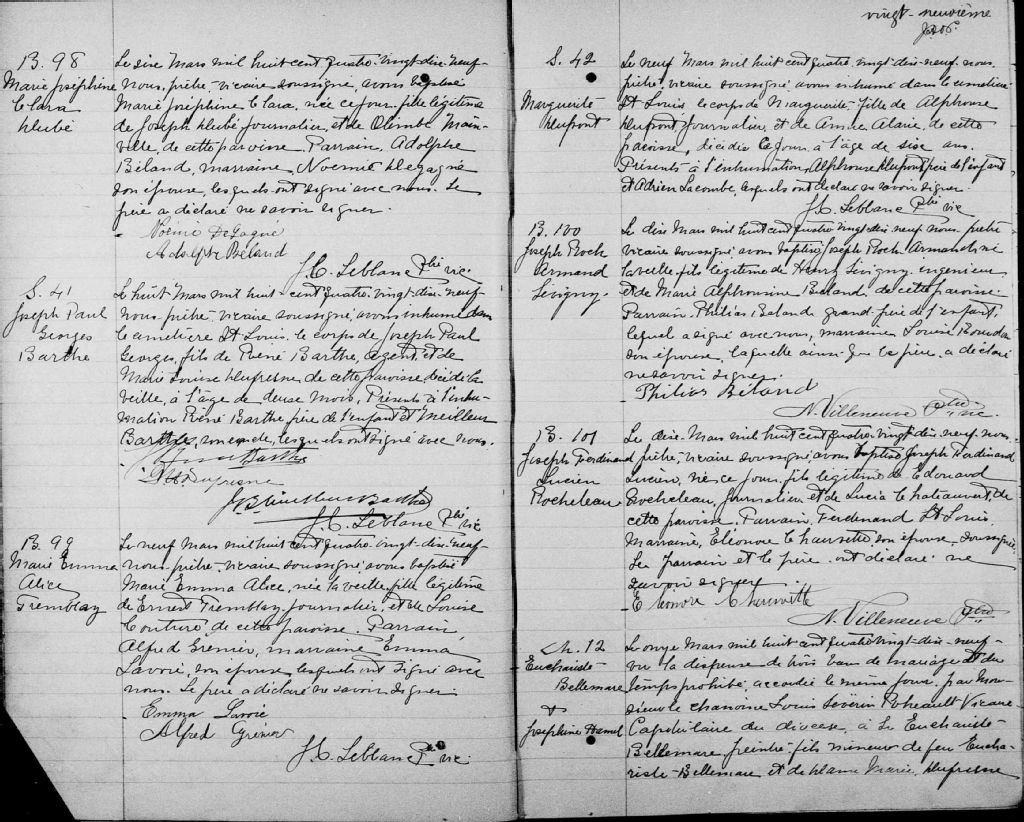 B. 98
Marie Joséphine
Clara
Dubé
Le six Mars mil huit cent quatre-vingt-dix-neuf-
nous, prêtre, vicaire soussigné, avons baptisé
Marie Joséphine Clara, née ce jour, fille légitime
de Joseph Dubé journalier, et de Olimbe Main-
ville, de cette paroisse. Parrain, Adolphe
Béland, marraine, Noemie Delagné
son épouse, lesquels ont signé avec nous. Le
père a déclaré ne savoir signer.
Adolphe Béland
J. C. Leblanc Ptre vic.
S. 41
Joseph Paul
Georges
Barthe
Le huit Mars mil huit-cent quatre-vingt-dix-neuf-
nous, prêtre, vicaire soussigné avons inhumé dans
le cimetière St Louis, le corps de Joseph Paul
Georges, fils de René Barthe, agent, et de
Marie Louise Dufresne de cette paroisse, décédé la
veille, à l'âge de deux mois. Présents à l'inhu-
mation René Barthe père de l'enfant et Meilleur
Barthe, son oncle, lesquels ont signé avec nous.
Barthe
Dufresne
Barthe
J. C. Leblanc Ptre vic
B. 99
Marie Emma
Alice
Tremblay
Le neuf Mars mil huit cent quatre-vingt-dix-neuf-
nous, prêtre, vicaire soussigné avons baptisé
Marie Emma Alice, née la veille, fille légitime
de Ernest Tremblay, journalier, et de Louise
Couture, de cette paroisse. Parrain,
Alfred Grenier, marraine Emma
Lavoie, son épouse lesquels ont signé avec
nous. Le père a déclaré ne savoir signer.
Emma Lavoie
Alfred Grénier
J. C. Leblanc Ptre vic.
vingt-neuvième
S. 42
Marguerite
Dupont
Le neuf Mars mil huit cent quatre-vingt-dix-neuf, nous,
prêtre, vicaire soussigné, avons inhumé dans le cimetière
St Louis le corps de Marguerite fille de Alphonse
Dupont, journalier, et de Anna Alarie, de cette
paroisse, décédée ce jour, à l'âge de six ans.
Présents à l'inhumation, Alphonse Dupont père de l'enfant
et Adrien Lacombe, lesquels ont déclaré ne savoir signer.
J. C. Leblanc Ptre vic
B. 100
Joseph Roch
Armand
Sévigny.
Le dix Mars mil huit cent quatre vingt-dix-neuf nous, prêtre
vicaire soussigné, avons baptisé Joseph Roch Armand né
la veille, fils légitime de Henry Sévigny, ingénieur
et de Marie Alphonsine Béland de cette paroisse.
Parrain Philias Béland grand-père de l'enfant,
lequel a signé avec nous, marraine Louise
son épouse, laquelle ainsi que le père, a déclaré
ne savoir signer.
Philias Béland
N. Villeneuve Ptre vic.
B. 101
Joseph Ferdinand
Lucien
Rocheleau
Le dix Mars mil huit cent quatre-vingt-dix-neuf, nous,
prêtre, vicaire soussigné, avons baptisé Joseph Ferdinand
Lucien, né ce jour, fils légitime de Edouard
Rocheleau, journalier et de Lucia Chateauvert, de
cette paroisse. Parrain, Ferdinand St Louis,
Marraine, Eléonore Chaurette son épouse, soussignée.
Le parrain et le père ont déclaré ne
savoir signer.
Eléonore
N. Villeneuve Ptre
M. 12
Euchariste
Bellemare
&
Joséphine Hamel
Le onze Mars mil huit cent quatre vingt-dix-neuf-
vu la dispense de trois bans de mariage et du
temps prohibé, accordée le même jour, par Mon-
sieur le chanoine Louis Séverin Rheault Vicaire
Capitulaire du diocèse, à Ls Euchariste
Bellemare, peintre, fils mineur de feu Eucha-
riste-Bellemare, et de Dame Marie Dufresne